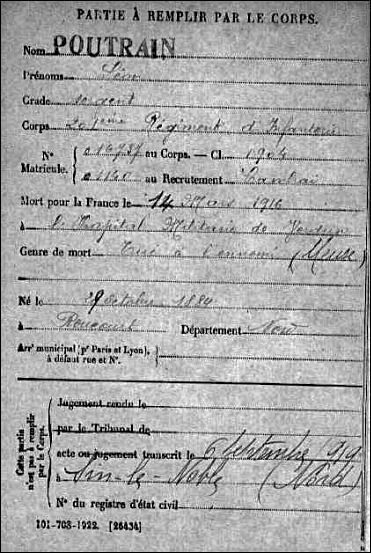 PARTIE À REMPLIR PAR LE CORPS.
Nom POUTRAIN
Prénoms Léon
Grade sergent
Corps Régiment d'Infanterie
N° au Corps. — Cl.
Matricule. 1140 au Recrutement Cambrai
Mort pour la France le 14 Mars 1916
à l'Hopital Militaire de Verdun
Genre de mort Tué à l'ennemi (Meuse)
Né le Octobre 1884
à Département Nord
Arr¹ municipal (pʳ Paris et Lyon),
à défaut rue et N°.
Cette partie n'est pas à remplir par le Corps.
Jugement rendu le
par le Tribunal de
acte ou jugement transcrit le 6 Septembre 1919
à Sin-le-Noble (Nord)
N° du registre d'état civil
101-708-1922. [26434]